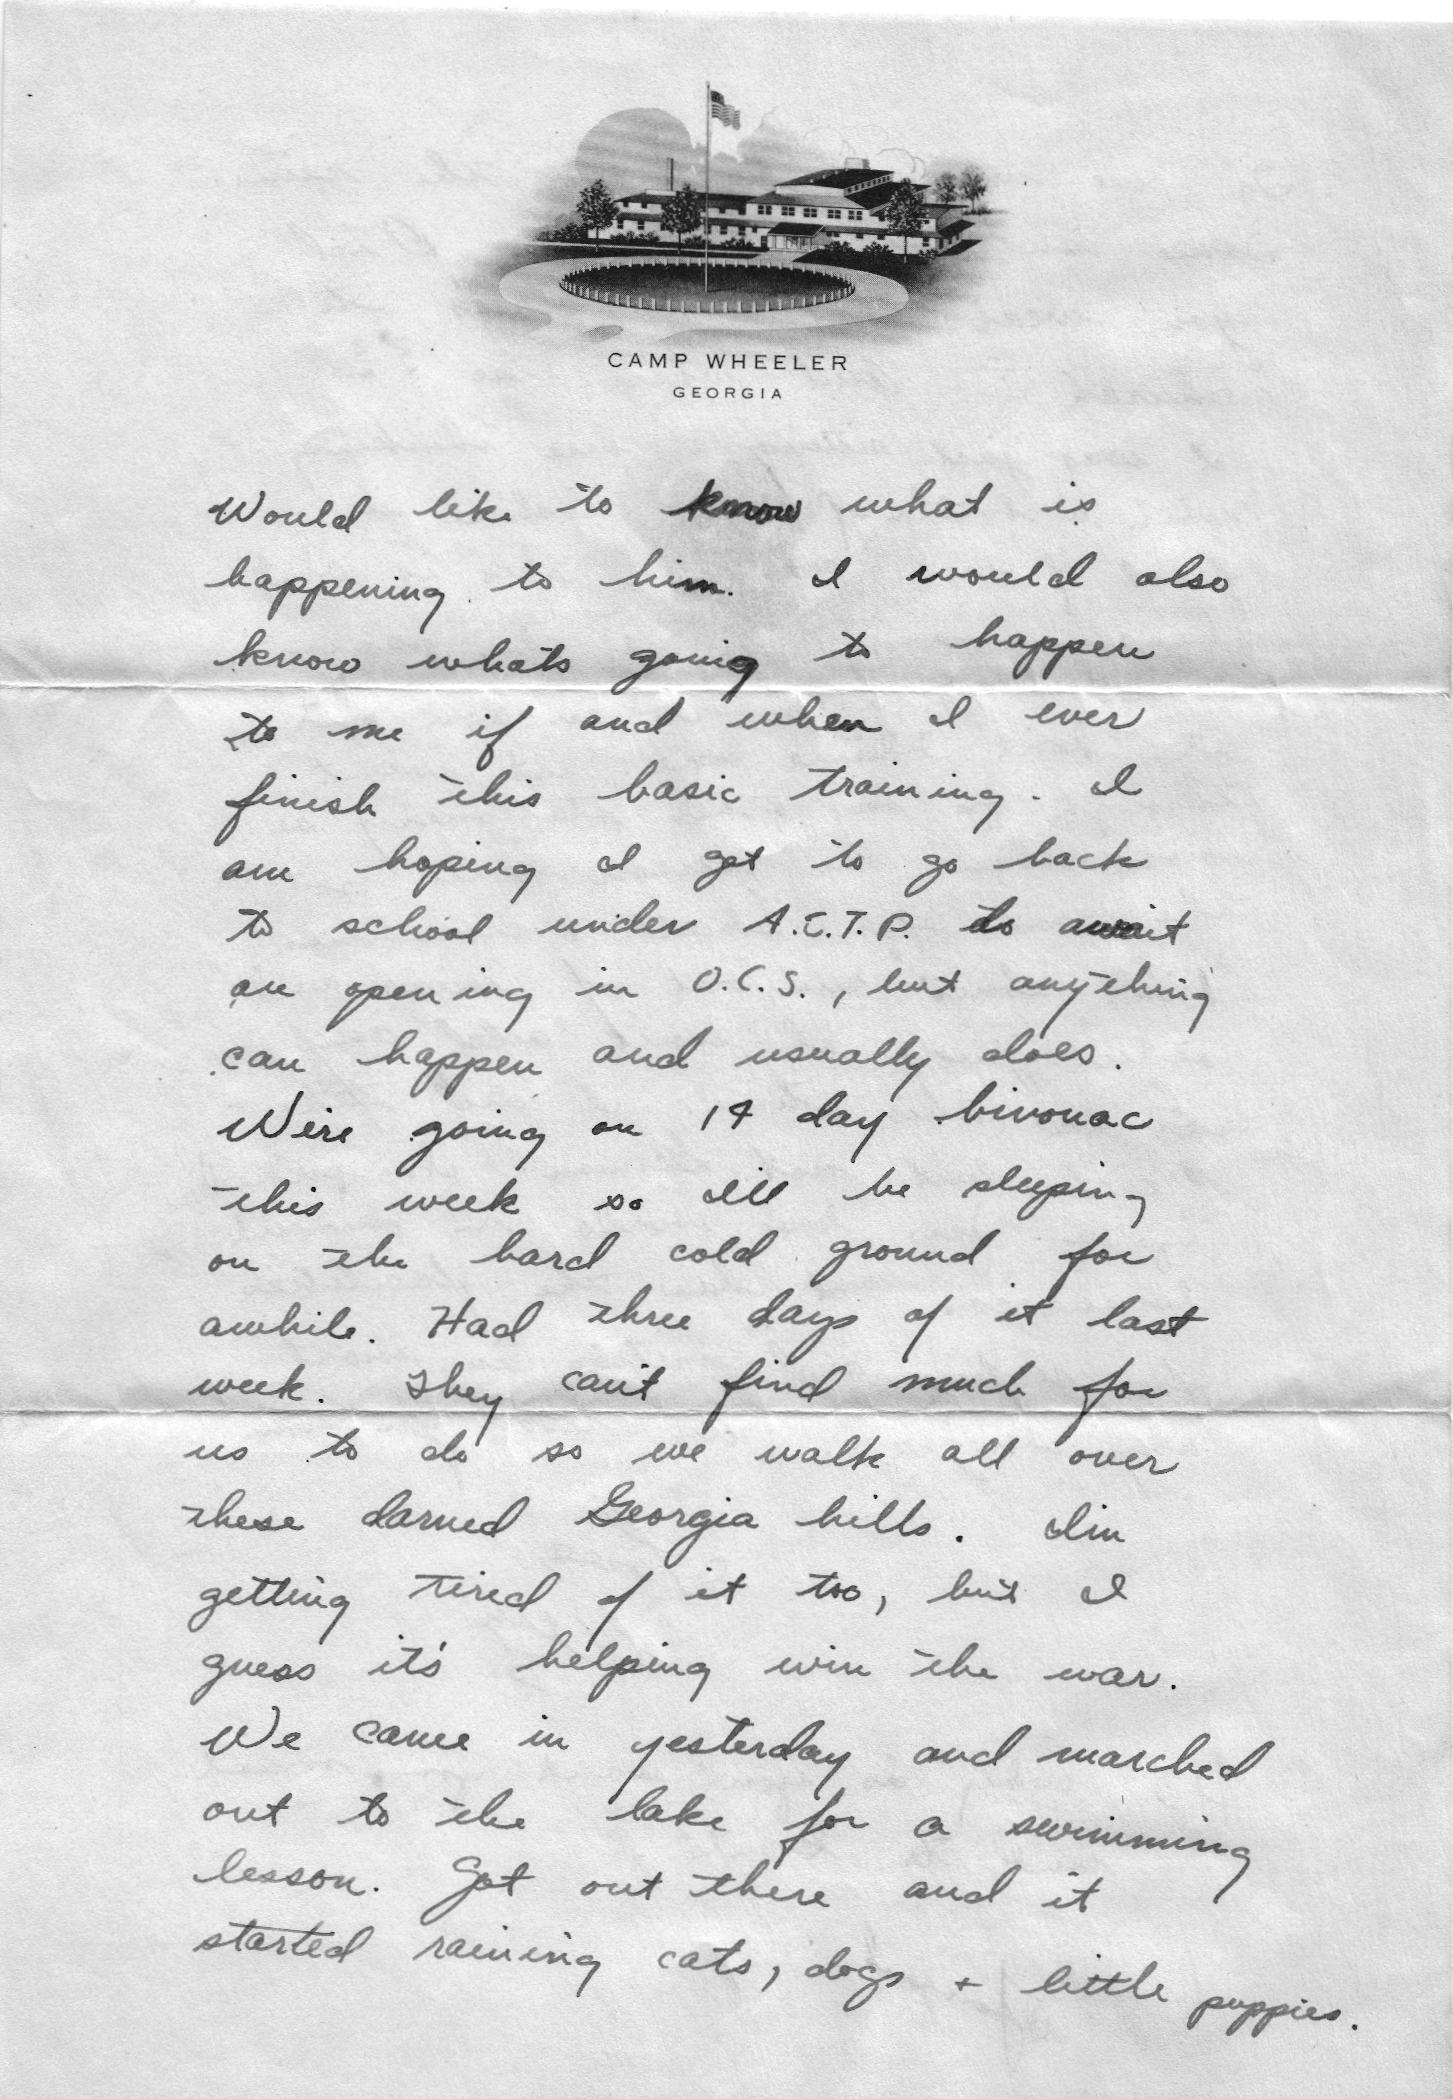 CAMP WHEELER
GEORGIA
Would like to know what is
happening to him. I would also
know whats going to happen
to me if and when I ever
finish this basic training. I
am hoping I get to go back
to school under A.S.T.P. to await
an opening in O.C.S., but anything
can happen and usually does.
We're going on 14 day bivouac
this week so I'll be sleeping
on the hard cold ground for
awhile. Had three days of it last
week. They can't find much for
us to do so we walk all over
these darned Georgia hills. I'm
getting tired of it too, but I
guess it's helping win the war.
We came in yesterday and marched
out to the lake for a swimming
lesson. Got out there and it
started raining cats, dogs + little puppies.